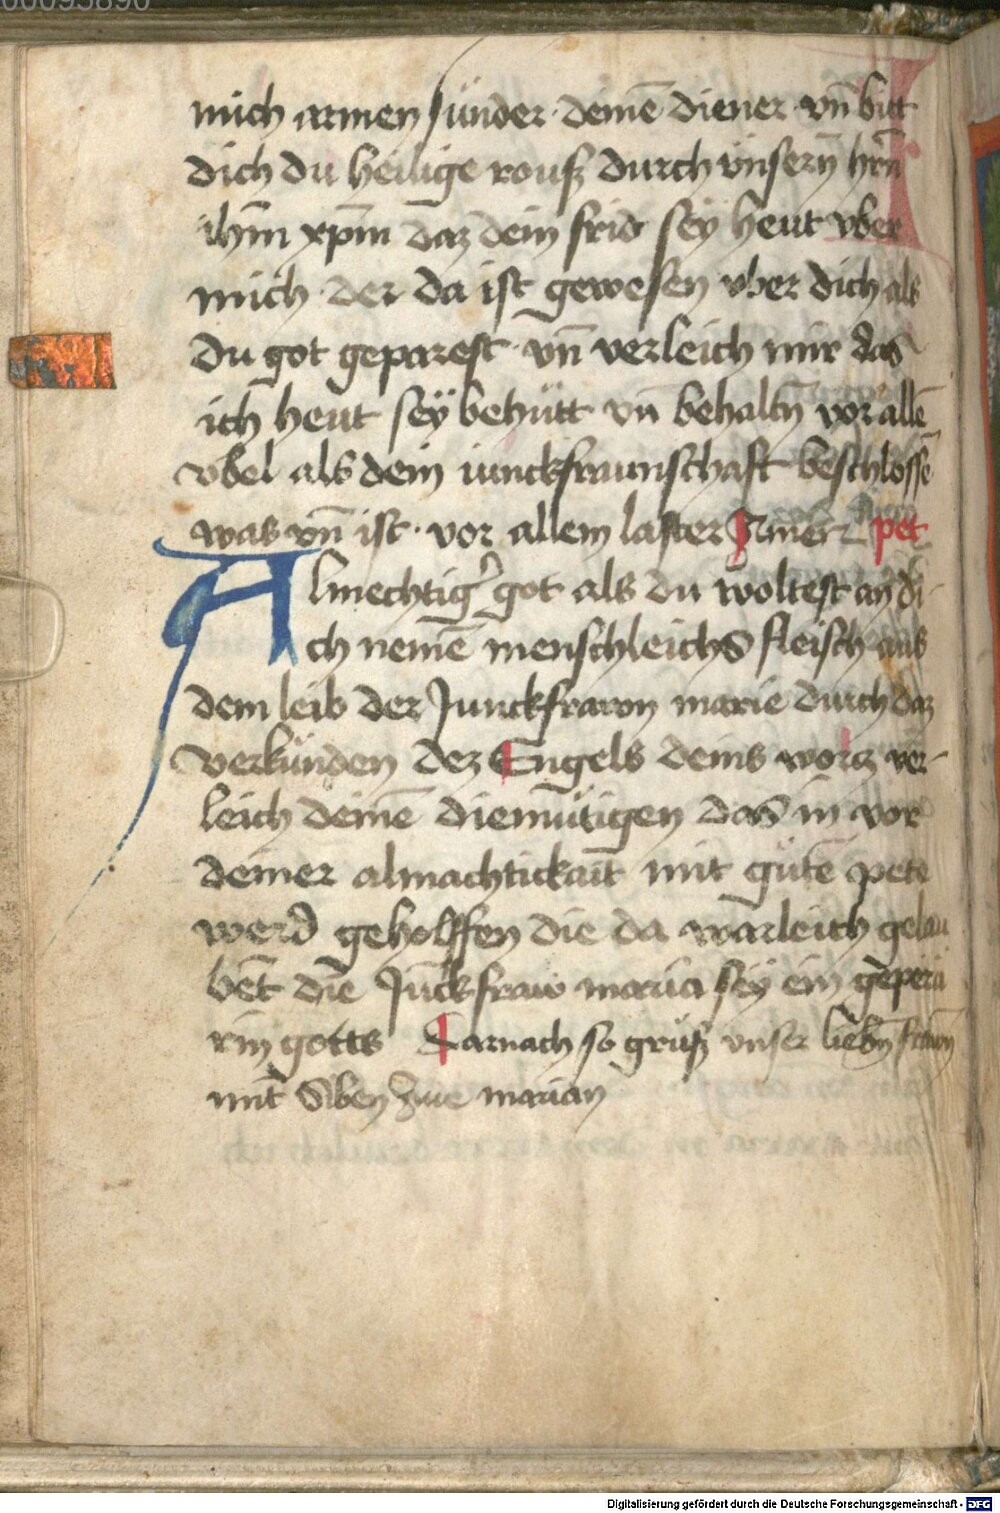 00095890
mich armen sünder deinē diener vn̄ bitt
dich du heilige rous durch vnsern̄ hr̄n
ihm̄ xp̄m daz dein frid sey heut vber
mich der da ist gewesen vber dich als
du got geparest vn̄ verleich mir das
ich heut sey behütt vn̄ behaltn̄ vor allē
vbel als dein iunckfraunschaft beschlossē
was vn̄ ist vor allem laster Amen pet
Almechtigˀ got als du woltest an di
ch nemē menschleichs fleisch aus
dem leib der Junckfrawn marie durch daz
verkünden dez Engels deins worz ver-
leich deinē diemütigen das in vor
deiner almachtickait mit gütē pete
werd geholffen die da warleich gelau
bēt die Jūckfraw maria sey ein gepera
rin gotts Darnach so grüss vnser liebn̄ frawn
mit Siben Aue marian
Digitalisierung gefördert durch die Deutsche Forschungsgemeinschaft - DFG